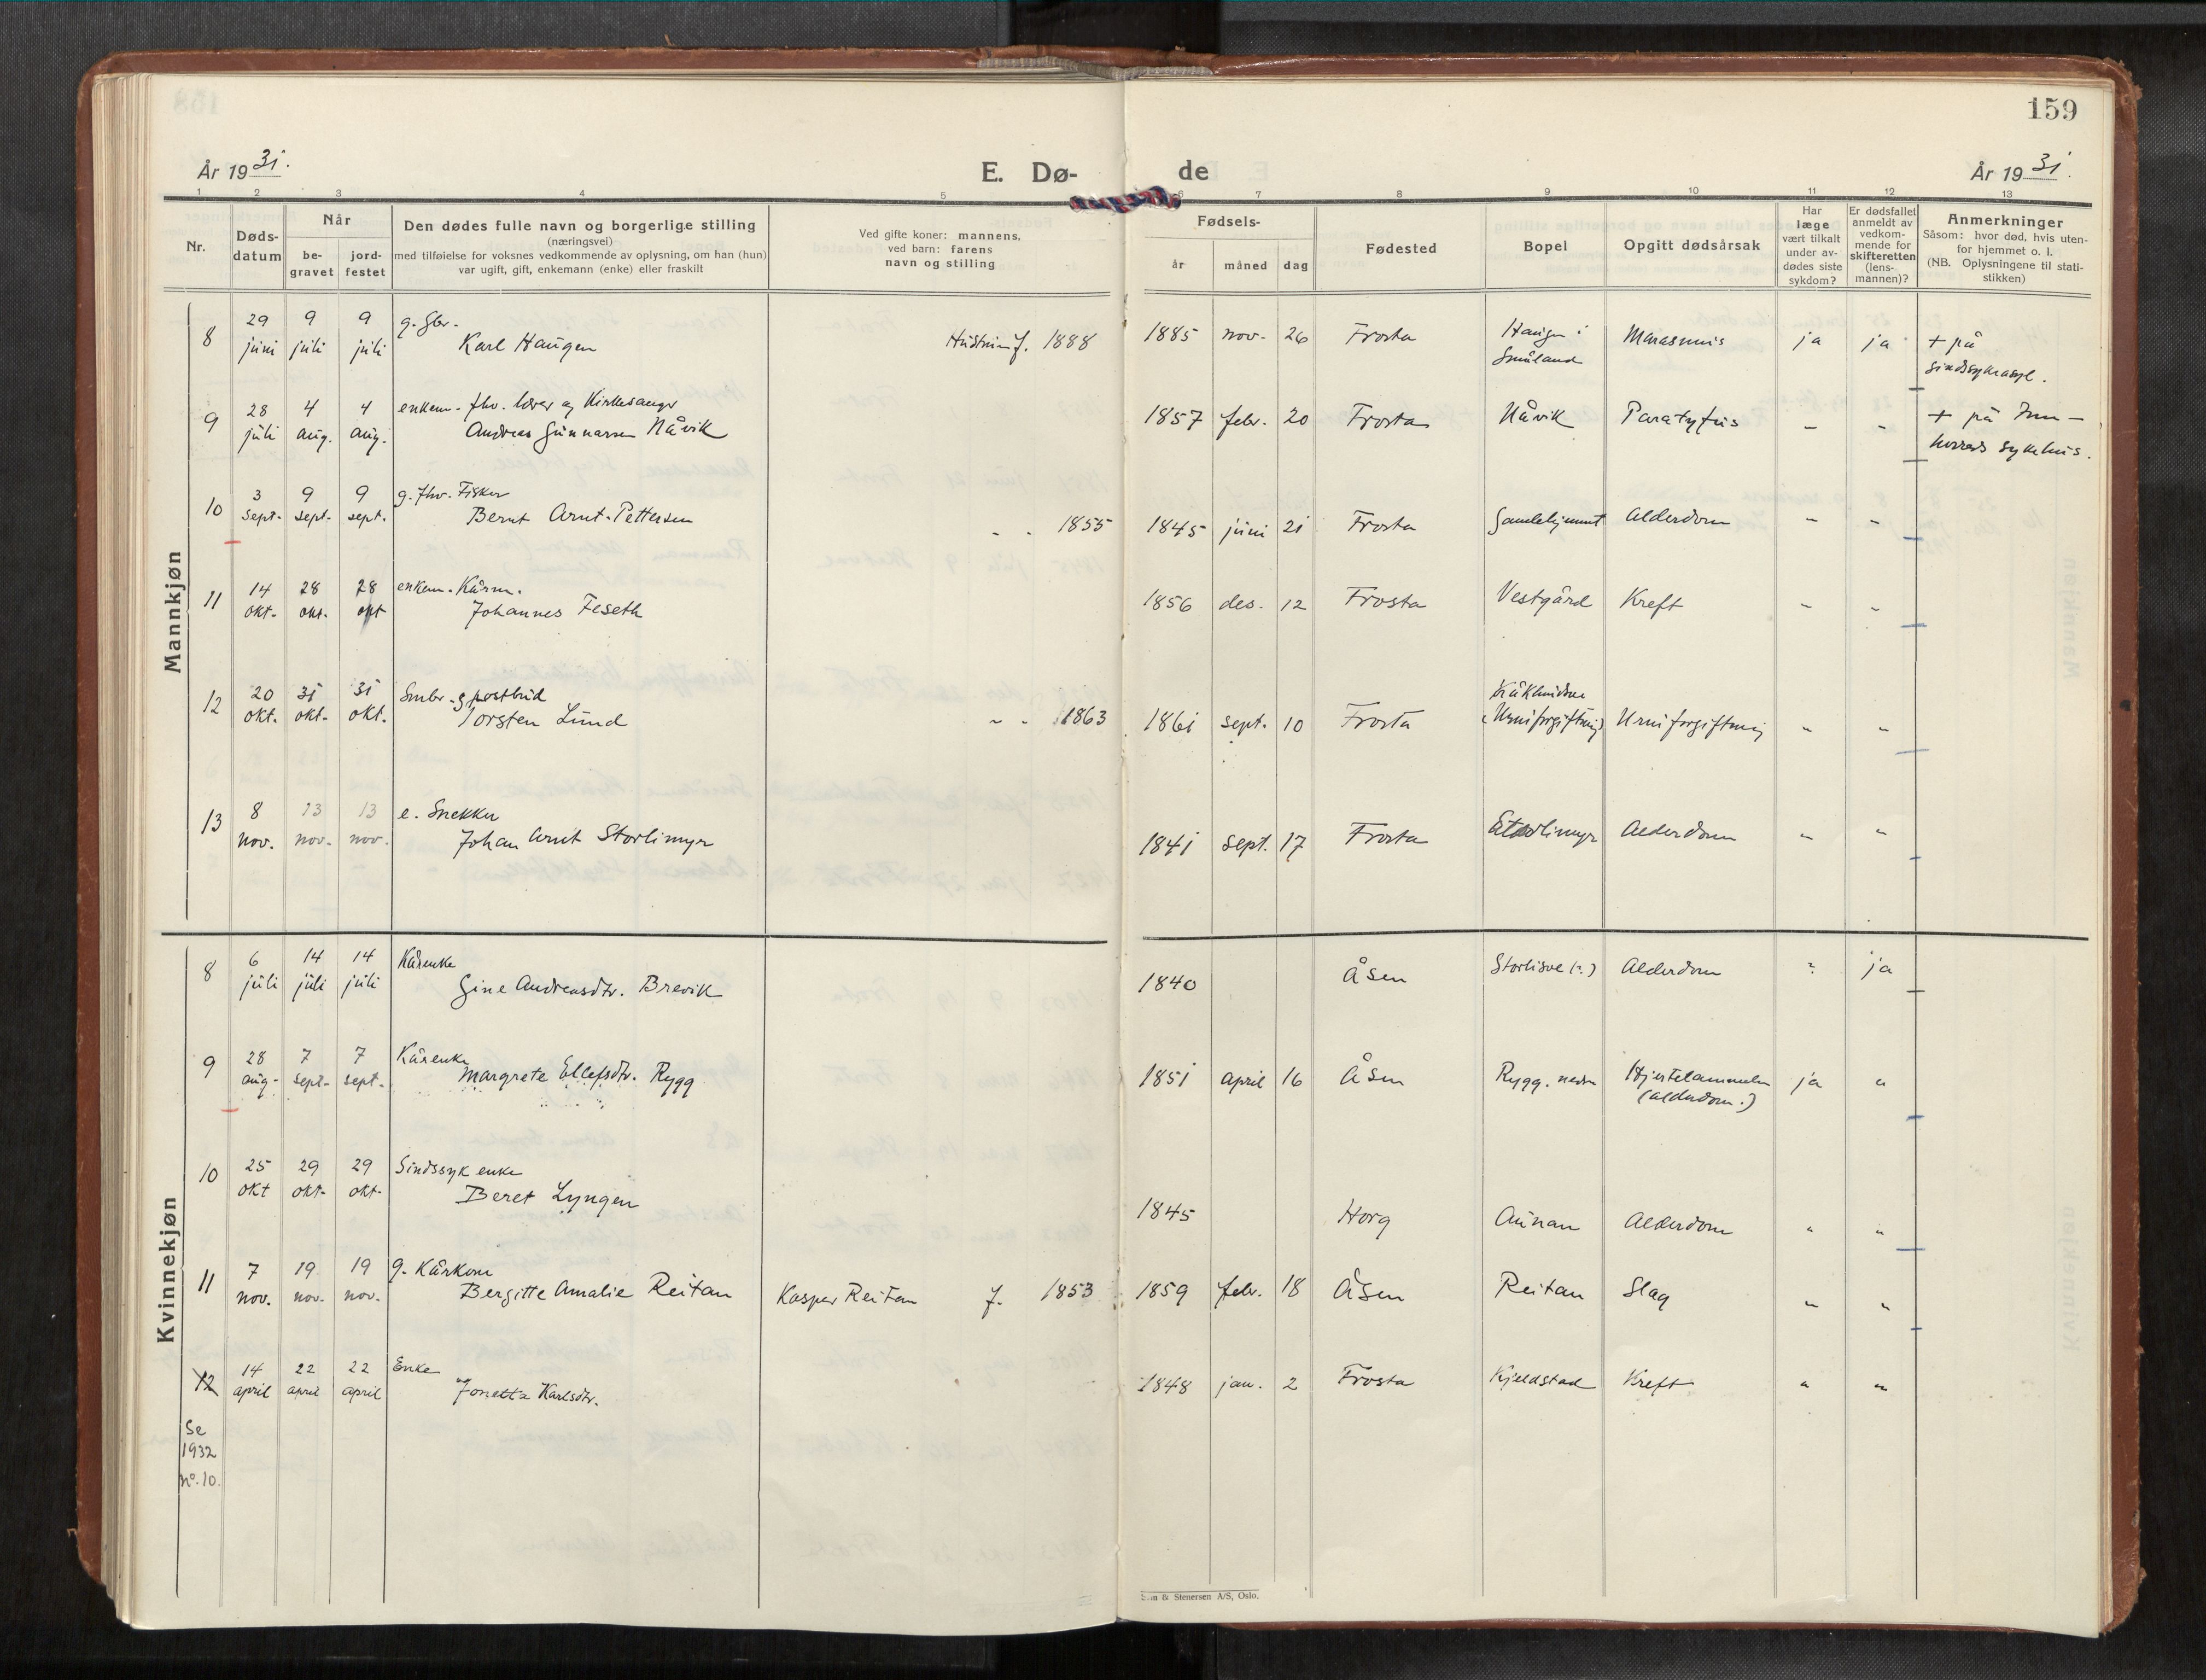 159
År 1931.
E. Dø-
de
År 1931.
1 2 3 4 5 6 7 8 9 10 11 12 13
Nr.
Døds-
datum
Når
be-
gravet
jord-
festet
Den dødes fulle navn og borgerlige stilling
(næringsvei)
med tilføielse for voksnes vedkommende av oplysning, om han (hun)
var ugift, gift, enkemann (enke) eller fraskilt
Ved gifte koner: mannens,
ved barn: farens
navn og stilling
Fødsels-
år
måned
dag
Fødested
Bopel
Opgitt dødsårsak
Har
læge
vært tilkalt
under av-
dødes siste
sykdom?
Er dødsfallet
anmeldt av
vedkom-
mende for
skifteretten
(lens-
mannen)?
Anmerkninger
Såsom: hvor død, hvis uten-
for hjemmet o. l.
(NB. Oplysningene til stati-
stikken)
Mannkjøn
29 9 9 g. Gbr. Haugen i
8 juni juli juli Karl Haugen Hustru f. 1888 1885 nov. 26 Frosta Småland Marasmus ja ja + på
sindssykeasyl.
28 4 4 enkem. fhv. lærer og Kirkesanger
9 juli aug. aug. Andreas Gunnarsen Nåvik 1857 febr. 20 Frosta Nåvik Paratyfus " " + på Inn-
herreds sykehus.
3 9 9 g. fhv. Fisker
10 sept. sept. sept. Bernt Arnt Pettersen " " 1855 1845 juni 21 Frosta Gamlehjemmet Alderdom " "
14 28 28 enkem. Kårm.
11 okt. okt. okt Johannes Feseth 1856 des. 12 Frosta Vestgård Kreft " "
20 31 31 Småbr. og postbud
12 okt. okt. okt. Torsten Lund " " 1863 1861 sept. 10 Frosta (Urniforgiftning) Urniforgiftning " "
8 13 13 e. Snekker
13 nov. nov. nov. Johan Arnt Storlimyr 1841 sept. 17 Frosta Storlimyr Alderdom " "
Kvinnekjøn
6 14 14 Kårenke
8 juli juli juli Gine Andreasdtr. Brevik 1840 Åsen Alderdom ? ja
28 7 7 Kårenke
9 aug. sept. sept. Margrete Ellefsdtr. Rygg 1851 april 16 Åsen Rygg, nedre Hjertelammelse ja "
(alderdom.)
25 29 29 Sindssyk enke
10 okt okt. okt. Beret Lyngen 1845 Horg Aunan Alderdom " "
7 19 19 g. Kårkone
11 nov. nov. nov. Bergitte Amalie Reitan Kasper Reitan f. 1853 1859 febr. 18 Åsen Reitan Slag " "
14 22 22 Enke
12 april april april Jonetta Karlsdtr. 1848 jan. 2 Frosta Kjeldstad Kreft " "
Se
1932
no. 10.
& Stenersen A/S, Oslo.